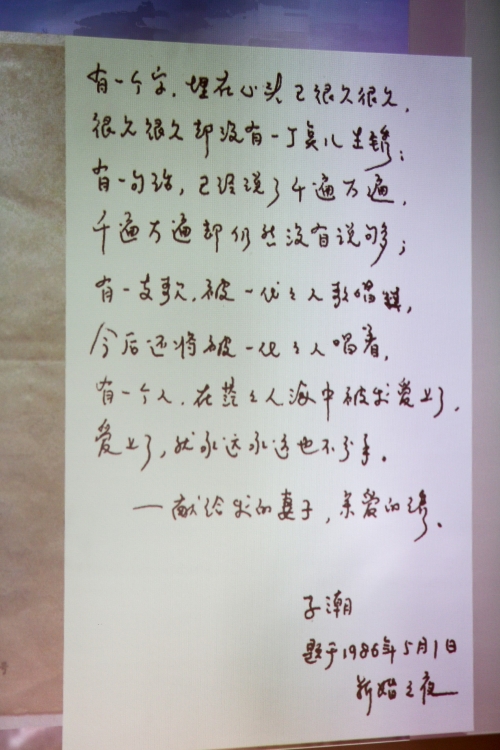 有一个字，埋在心头已很久很久，
很久很久却没有一丁真儿生锈；
有一句话，已经说了千遍万遍，
千遍万遍却仍然没有说够；
有一支歌，被一代々人歌唱，
今后还将被一代々人唱着，
有一个人，在茫々人海中被我爱上了，
爱上了，就永远永远也不分手。
—献给我的妻子，亲爱的
子潮
题于1986年5月1日
新婚之夜